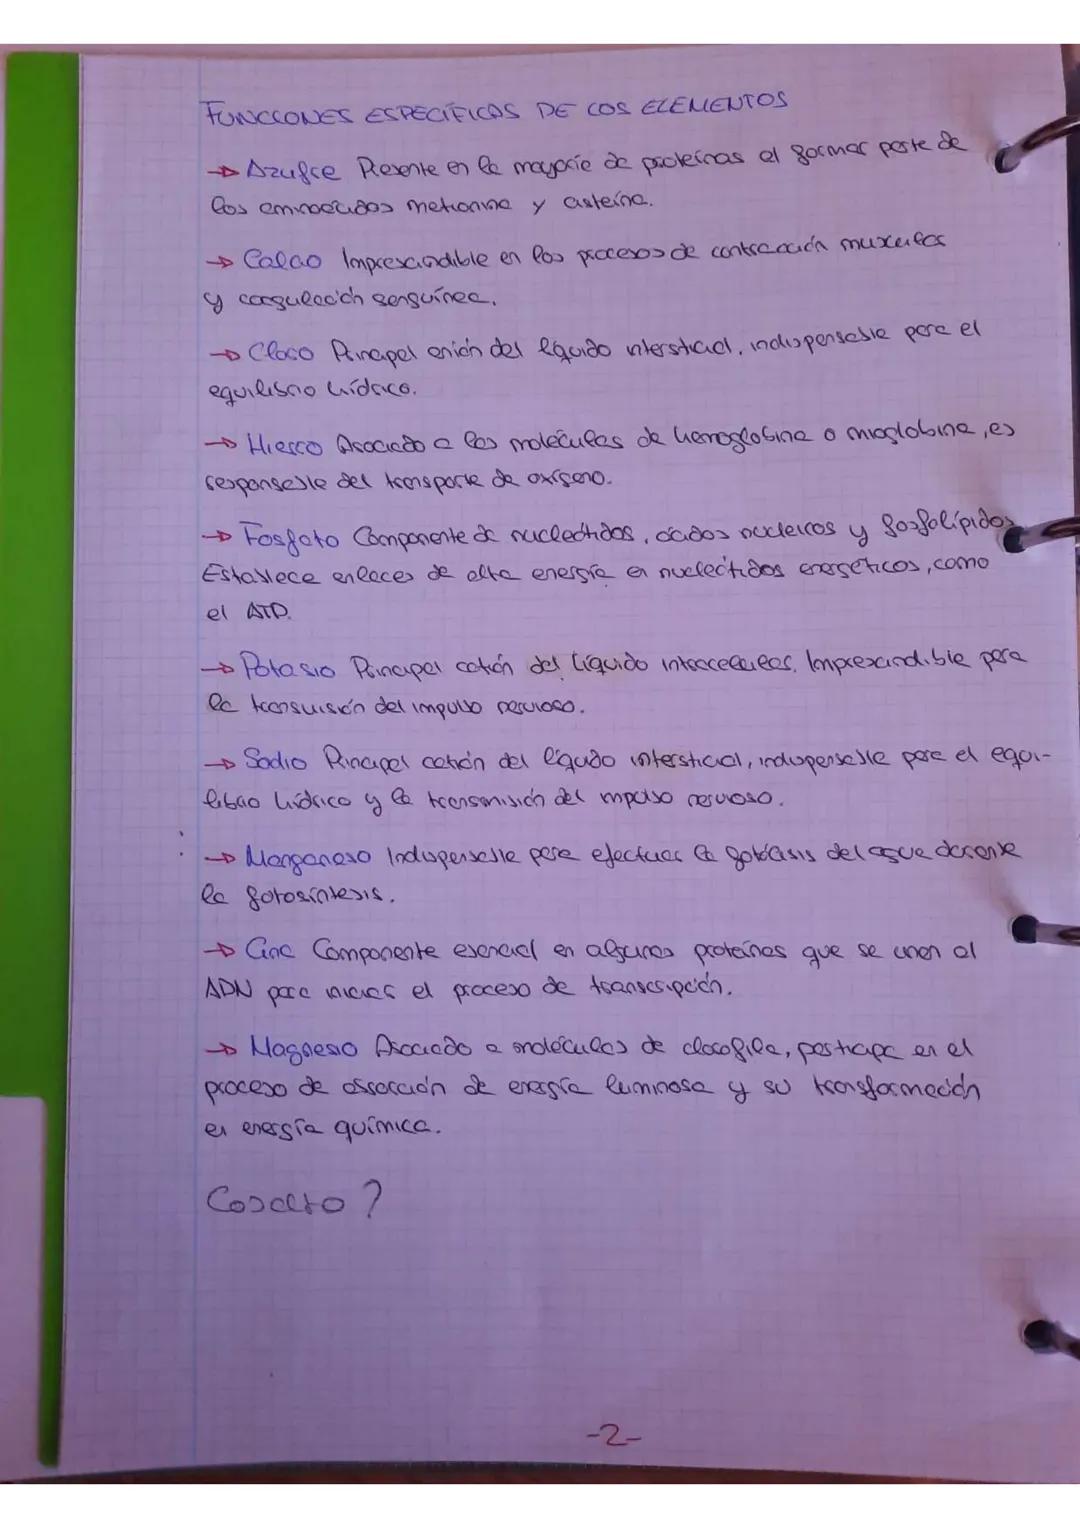 FUNCIONES ESPECÍFICAS DE LOS ELEMENTOS
→ Azufre Presente en la mayoría de proteínas al formar parte de
los aminoácidos metionina y cisteína.
→ Calcio Imprescindible en los procesos de contracción muscular
y coagulación sanguínea.
→ Cloro Principal anión del líquido intersticial, indispensable para el
equilibrio hídrico.
→ Hierro Asociado a las moléculas de hemoglobina o mioglobina, es
responsable del transporte de oxígeno.
→ Fosfato Componente de nucleótidos, ácidos nucleicos y fosfolípidos
Establece enlaces de alta energía en nucleótidos energéticos, como
el ATP.
→ Potasio Principal catión del líquido intracelular. Imprescindible para
la transmisión del impulso nervioso.
→ Sodio Principal catión del líquido intersticial, indispensable para el equi-
librio hídrico y la transmisión del impulso nervioso.
→ Manganeso Indispensable para efectuar la fotólisis del agua durante
la fotosíntesis.
→ Cinc Componente esencial en algunas proteínas que se unen al
ADN para iniciar el proceso de transcripción.
→ Magnesio Asociado a moléculas de clorofila, participa en el
proceso de absorción de energía luminosa y su transformación
en energía química.
Cosalto?
-2-